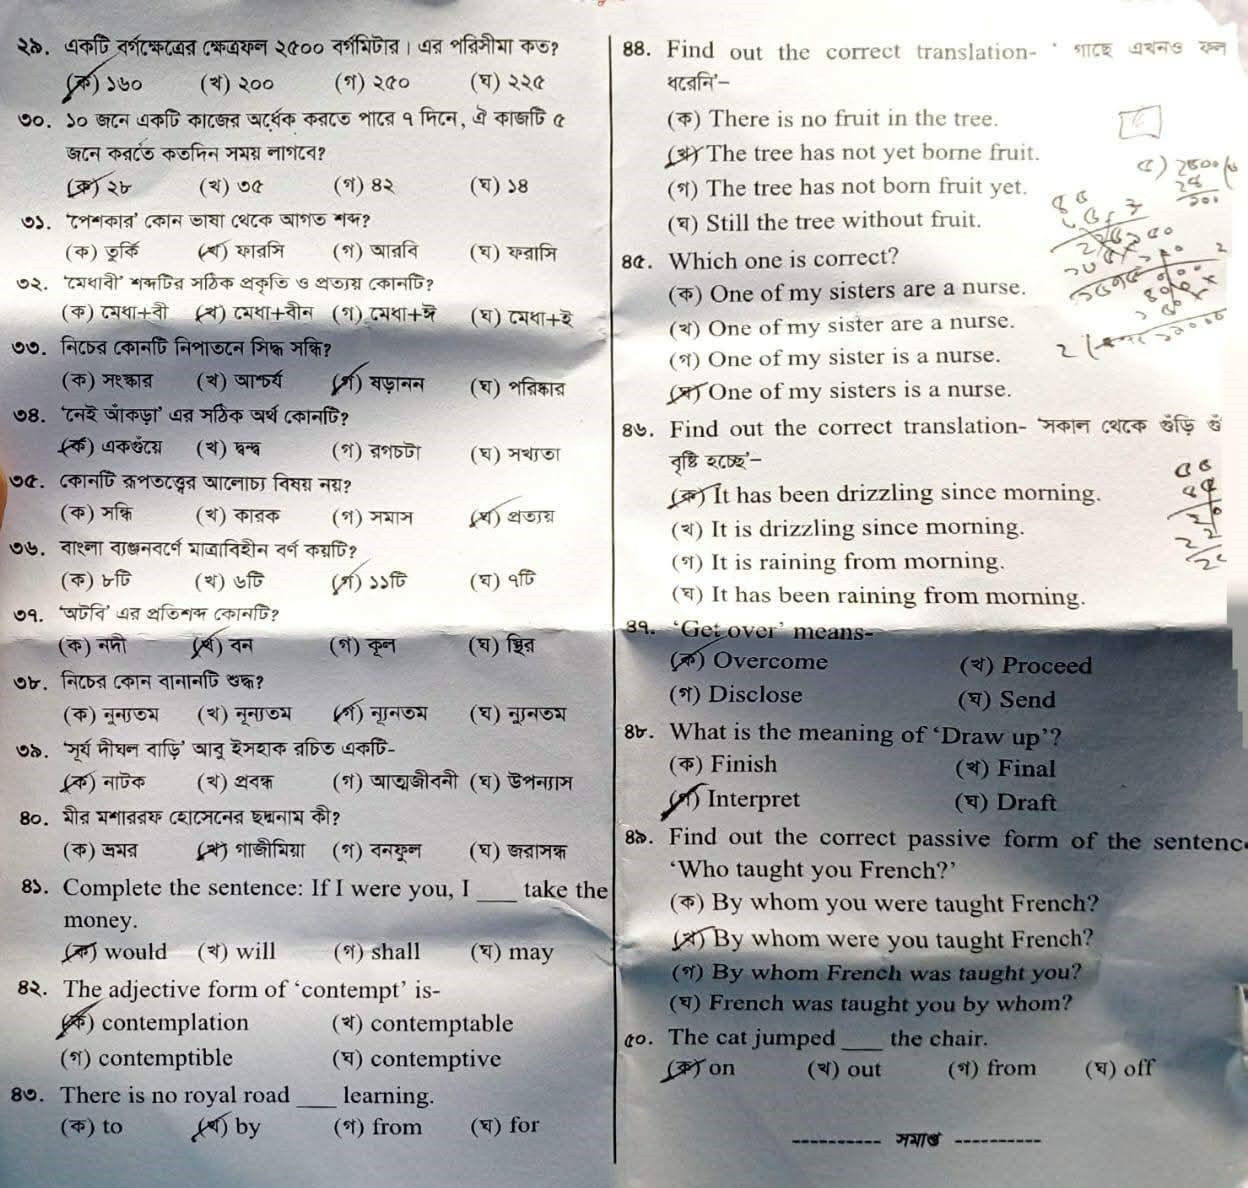 ২৯. একটি বর্গক্ষেত্রের ক্ষেত্রফল ২৫০০ বর্গমিটার। এর পরিসীমা কত?
(ক) ১৬০ (খ) ২০০ (গ) ২৫০ (ঘ) ২২৫
৩০. ১০ জনে একটি কাজের অর্ধেক করতে পারে ৭ দিনে, ঐ কাজটি ৫
জনে করতে কতদিন সময় লাগবে?
(ক) ২৮ (খ) ৩৫ (গ) ৪২ (ঘ) ১৪
৩১. ‘পেশকার’ কোন ভাষা থেকে আগত শব্দ?
(ক) তুর্কি (খ) ফারসি (গ) আরবি (ঘ) ফরাসি
৩২. ‘মেধাবী’ শব্দটির সঠিক প্রকৃতি ও প্রত্যয় কোনটি?
(ক) মেধা+বী (খ) মেধা+বীন (গ) মেধা+ঈ (ঘ) মেধা+ই
৩৩. নিচের কোনটি নিপাতনে সিদ্ধ সন্ধি?
(ক) সংস্কার (খ) আশ্চর্য (গ) ষড়ানন (ঘ) পরিষ্কার
৩৪. ‘নেই আঁকড়া’ এর সঠিক অর্থ কোনটি?
(ক) একগুঁয়ে (খ) দ্বন্দ্ব (গ) রগচটা (ঘ) সখ্যতা
৩৫. কোনটি রূপতত্ত্বের আলোচ্য বিষয় নয়?
(ক) সন্ধি (খ) কারক (গ) সমাস (ঘ) প্রত্যয়
৩৬. বাংলা ব্যঞ্জনবর্ণে মাত্রাবিহীন বর্ণ কয়টি?
(ক) ৮টি (খ) ৬টি (গ) ১১টি (ঘ) ৭টি
৩৭. ‘অটবি’ এর প্রতিশব্দ কোনটি?
(ক) নদী (খ) বন (গ) কূল (ঘ) স্থির
৩৮. নিচের কোন বানানটি শুদ্ধ?
(ক) নুন্যতম (খ) নূন্যতম (গ) ন্যূনতম (ঘ) ন্যুনতম
৩৯. ‘সূর্য দীঘল বাড়ি’ আবু ইসহাক রচিত একটি-
(ক) নাটক (খ) প্রবন্ধ (গ) আত্মজীবনী (ঘ) উপন্যাস
৪০. মীর মশাররফ হোসেনের ছদ্মনাম কী?
(ক) ভ্রমর (খ) গাজীমিয়া (গ) বনফুল (ঘ) জরাসন্ধ
৪১. Complete the sentence: If I were you, I ____ take the
money.
(ক) would (খ) will (গ) shall (ঘ) may
৪২. The adjective form of ‘contempt’ is-
(ক) contemplation (খ) contemptable
(গ) contemptible (ঘ) contemptive
৪৩. There is no royal road ____ learning.
(ক) to (খ) by (গ) from (ঘ) for
৪৪. Find out the correct translation- ‘ গাছে এখনও ফল
ধরেনি’–
(ক) There is no fruit in the tree.
(খ) The tree has not yet borne fruit.
(গ) The tree has not born fruit yet.
(ঘ) Still the tree without fruit.
৪৫. Which one is correct?
(ক) One of my sisters are a nurse.
(খ) One of my sister are a nurse.
(গ) One of my sister is a nurse.
(ঘ) One of my sisters is a nurse.
৪৬. Find out the correct translation- ‘সকাল থেকে গুঁড়ি গুঁ
বৃষ্টি হচ্ছে’–
(ক) It has been drizzling since morning.
(খ) It is drizzling since morning.
(গ) It is raining from morning.
(ঘ) It has been raining from morning.
৪৭. ‘Get over’ means-
(ক) Overcome (খ) Proceed
(গ) Disclose (ঘ) Send
৪৮. What is the meaning of ‘Draw up’?
(ক) Finish (খ) Final
(গ) Interpret (ঘ) Draft
৪৯. Find out the correct passive form of the sentenc
‘Who taught you French?’
(ক) By whom you were taught French?
(খ) By whom were you taught French?
(গ) By whom French was taught you?
(ঘ) French was taught you by whom?
৫০. The cat jumped ____ the chair.
(ক) on (খ) out (গ) from (ঘ) off
----------- সমাপ্ত -----------